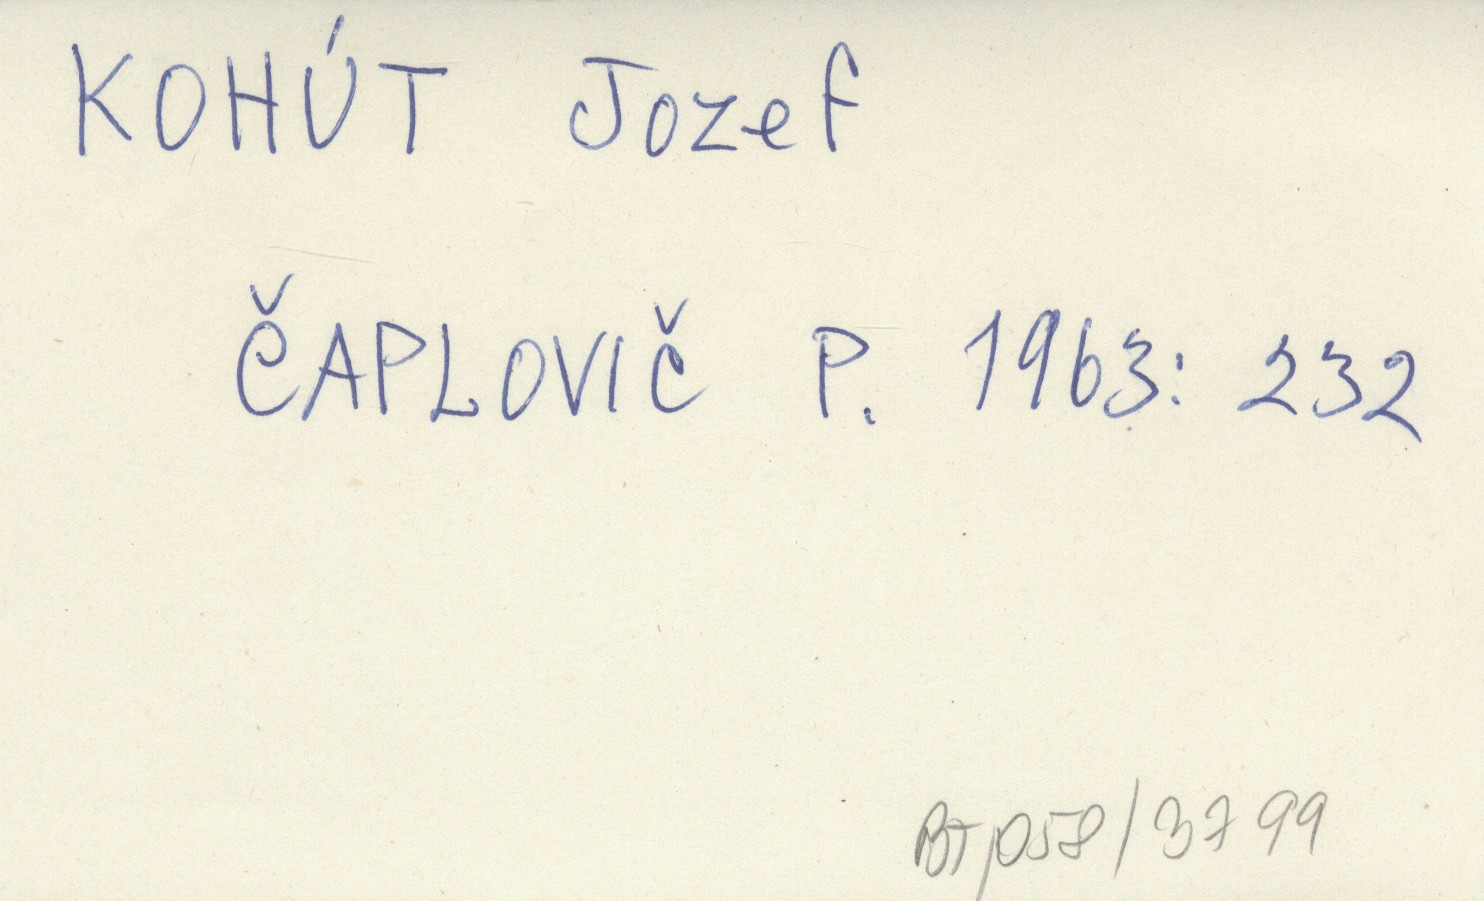 KOHÚT Jozef
ČAPLOVIČ P. 1963: 232
BT/058/3799